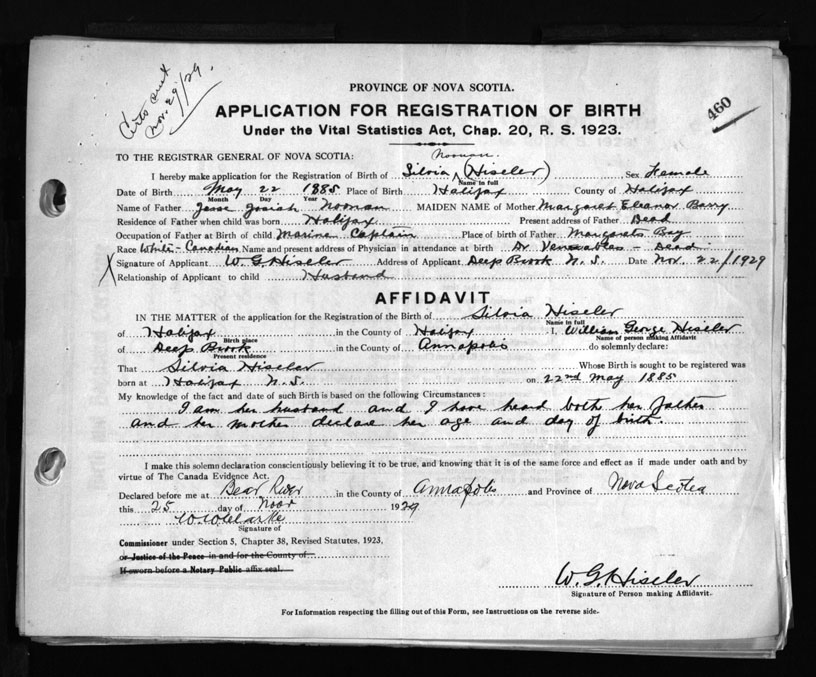 Certs sent
Nov. 29/29.
460
PROVINCE OF NOVA SCOTIA.
APPLICATION FOR REGISTRATION OF BIRTH
Under the Vital Statistics Act, Chap. 20, R. S. 1923.
TO THE REGISTRAR GENERAL OF NOVA SCOTIA: Noonan.
I hereby make application for the Registration of Birth of Silvia (Hiseler) Sex Female
Name in full
Date of Birth May 22 1885 Place of Birth Halifax County of Halifax
Month Day Year
Name of Father Jesse Josiah Noonan MAIDEN NAME of Mother Margaret Eleanor Barry
Residence of Father when child was born Halifax Present address of Father Dead
Occupation of Father at Birth of child Marine Captain Place of birth of Father Margarets Bay
Race White-Canadian Name and present address of Physician in attendance at birth Dr Venables - Dead.
X Signature of Applicant W. G. Hiseler Address of Applicant Deep Brook N. S. Date Nov 22/1929
Relationship of Applicant to child Husband
AFFIDAVIT
IN THE MATTER of the application for the Registration of the Birth of Silvia Hiseler
Name in full
of Halifax in the County of Halifax I, William George Hiseler
Birth place Name of person making Affidavit
of Deep Brook in the County of Annapolis do solemnly declare:
Present residence
That Silvia Hiseler Whose Birth is sought to be registered was
born at Halifax N. S. on 22nd May 1885
My knowledge of the fact and date of such Birth is based on the following Circumstances:
I am her husband and I have heard both her father
and her mother declare her age and day of birth.
I make this solemn declaration conscientiously believing it to be true, and knowing that it is of the same force and effect as if made under oath and by
virtue of The Canada Evidence Act.
Declared before me at Bear River in the County of Annapolis and Province of Nova Scotia
this 25 day of Novr 1929
W. W. Clarke
Signature of
Commissioner under Section 5, Chapter 38, Revised Statutes, 1923,
or Justice of the Peace in and for the County of
If sworn before a Notary Public affix seal.
W. G. Hiseler
Signature of Person making Affidavit.
For Information respecting the filling out of this Form, see Instructions on the reverse side.